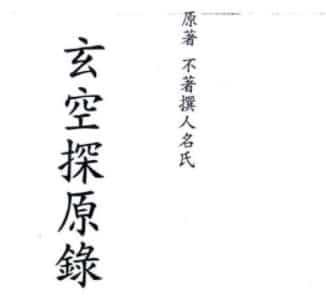 原著 不著撰人名氏
玄空探原錄